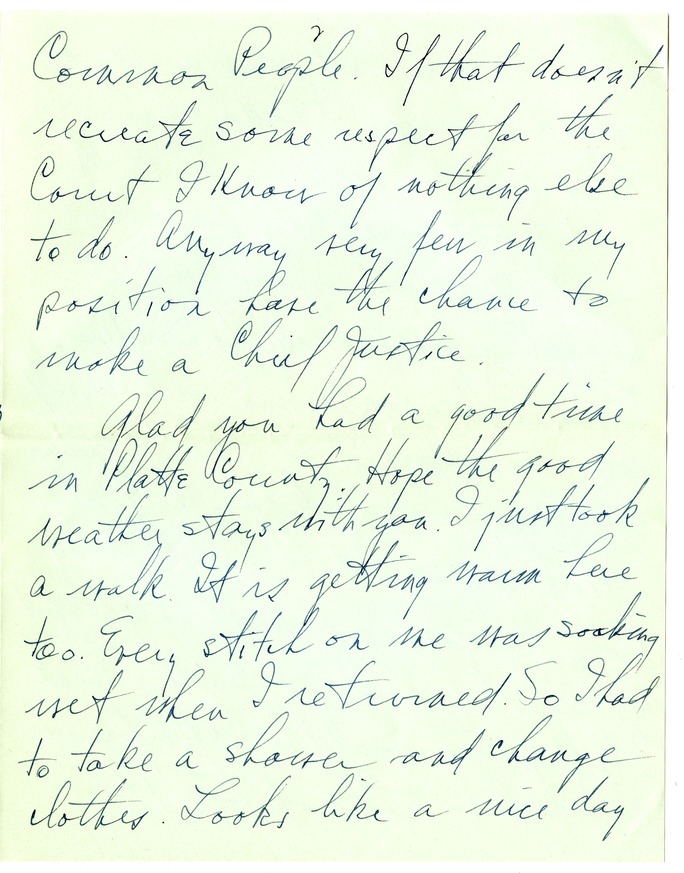 Common People. If that doesn't
recreate some respect for the
Court I know of nothing else
to do. Anyway very few in my
position have the chance to
make a Chief Justice.
Glad you had a good time
in Platte County. Hope the good
weather stays with you. I just took
a walk. It is getting warm here
too. Every stitch on me was soaking
wet when I returned. So I had
to take a shower and change
clothes. Looks like a nice day